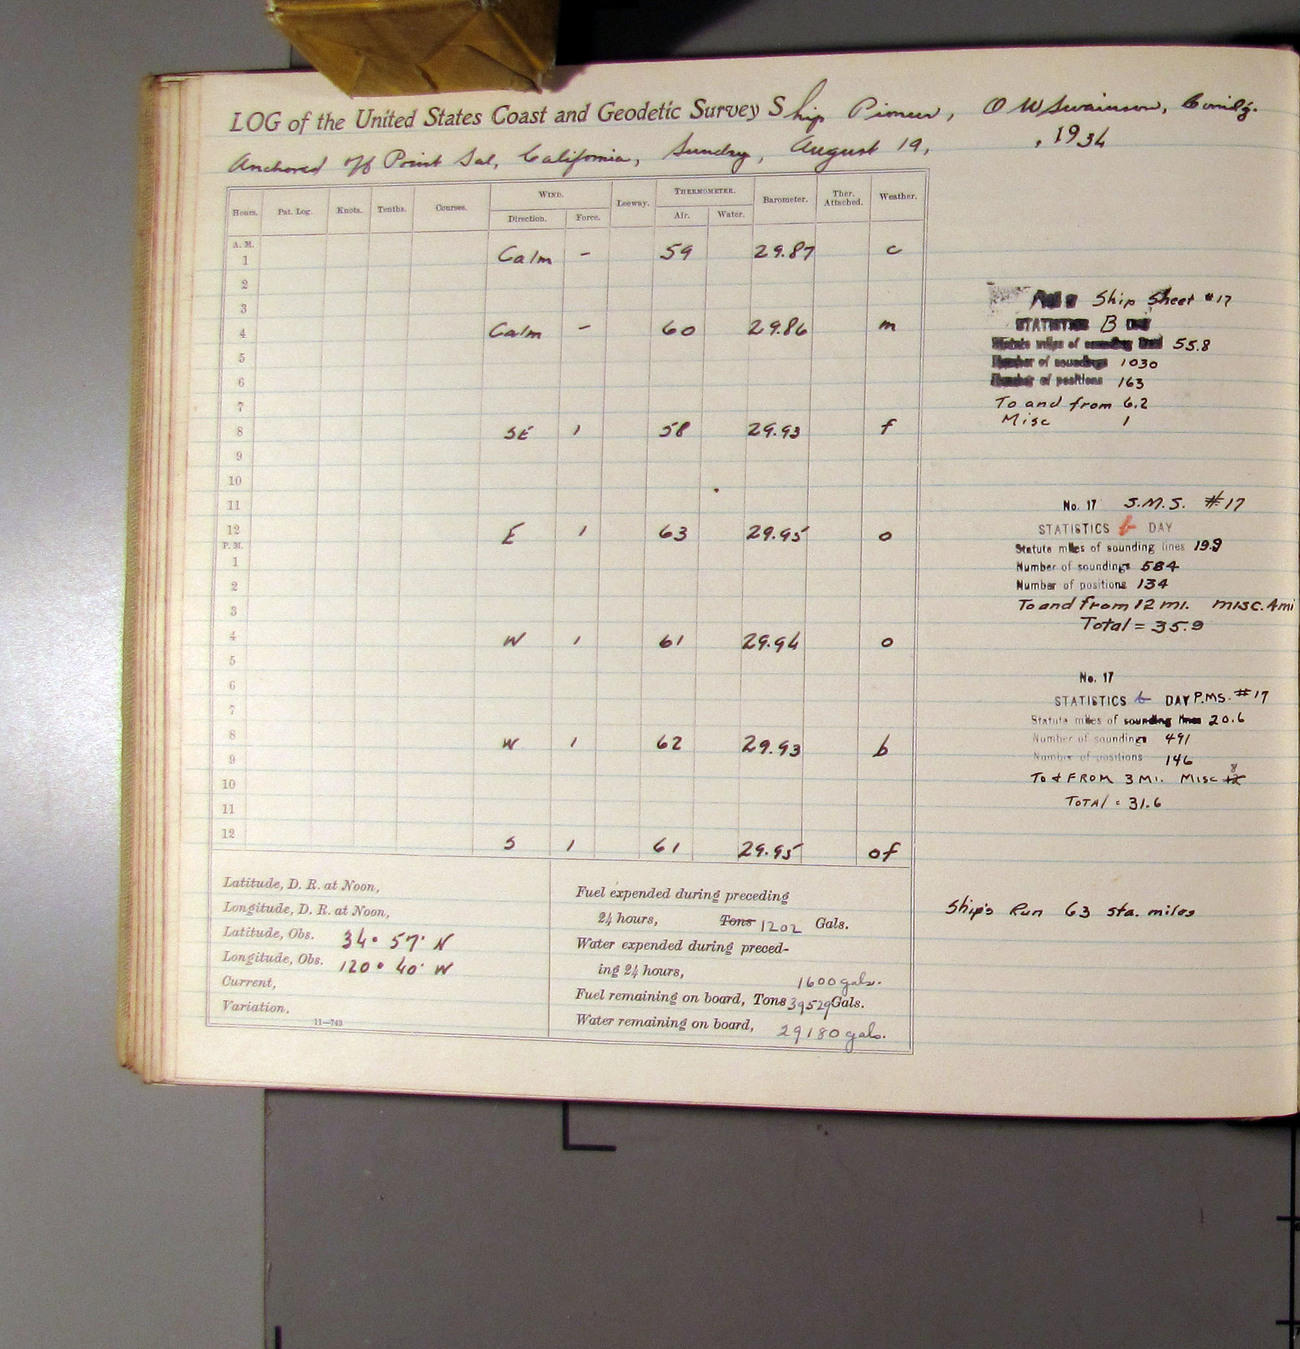 LOG of the United States Coast and Geodetic Survey Ship Pioneer, O W Swainson, Comd'g.
Anchored off Point Sal, California, Sunday, August 19, , 1934
Hours. Pat. Log. Knots. Tenths. Courses. WIND. Direction. Force. Leeway. THERMOMETER. Air. Water. Barometer. Ther. Attached. Weather.
A. M.
1 Calm – 59 29.87 c
2
3
4 Calm – 60 29.86 m
5
6
7
8 SE 1 58 29.93 f
9
10
11
12 E 1 63 29.95 o
P. M.
1
2
3
4 W 1 61 29.94 o
5
6
7
8 W 1 62 29.93 b
9
10
11
12 S 1 61 29.95 of
Latitude, D. R. at Noon,
Longitude, D. R. at Noon,
Latitude, Obs. 34° 57' N
Longitude, Obs. 120° 40' W
Current,
Variation,
11—743
Fuel expended during preceding
24 hours, Tons 1202 Gals.
Water expended during preced-
ing 24 hours,
1600 gals.
Fuel remaining on board, Tons 39529 Gals.
Water remaining on board, 29180 gals.
Ship Sheet #17
STATISTICS B DAY
Statute miles of sounding lines 55.8
Number of soundings 1030
Number of positions 163
To and from 6.2
Misc 1
No. 17 S.M.S. #17
STATISTICS b DAY
Statute miles of sounding lines 19.9
Number of soundings 584
Number of positions 134
To and from 12 mi. misc. 4 mi
Total = 35.9
No. 17
STATISTICS b DAY P.M.S. #17
Statute miles of sounding lines 20.6
Number of soundings 491
Number of positions 146
To & FROM 3 MI. Misc 8
TOTAL = 31.6
Ship's Run 63 sta. miles